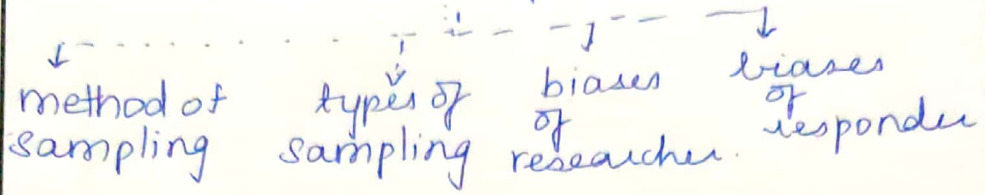 method of
sampling
types of
sampling
biases
of
researcher.
biases
of
responder